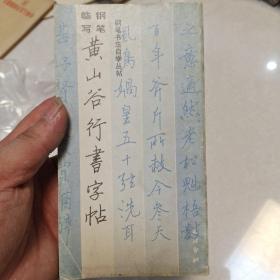 之意適然老松魁梧數
百年斧斤所赦今参天
風鳴媧皇五十弦洗耳
钢笔书法自学丛帖
钢笔
临写
黄山谷行書字帖